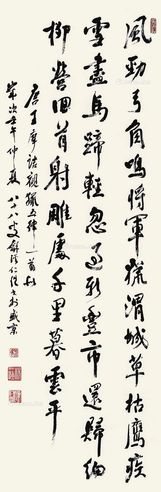 風勁弓角鳴將軍獵渭城草枯鷹疾
雪盡馬蹄輕忽過新豐市還歸細
柳營回首射雕處千里暮雲平
唐王摩詰觀獵五律一首
歲次壬午仲夏八十八叟仁愷書於盛京